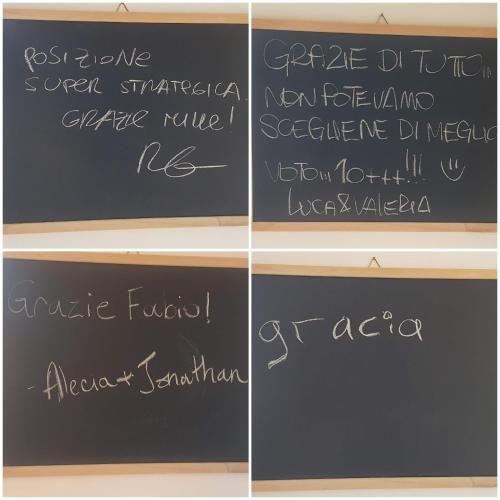 POSIZIONE
SUPER STRATEGICA.
GRAZIE MILLE!
RG
GRAZIE DI TUTTO...
NON POTEVAMO
SCEGLIENE DI MEGLIO
VOTO... 10+++!!!
LUCA&VALERIA
Grazie Fabio!
- Alecia + Jonathan
gracia